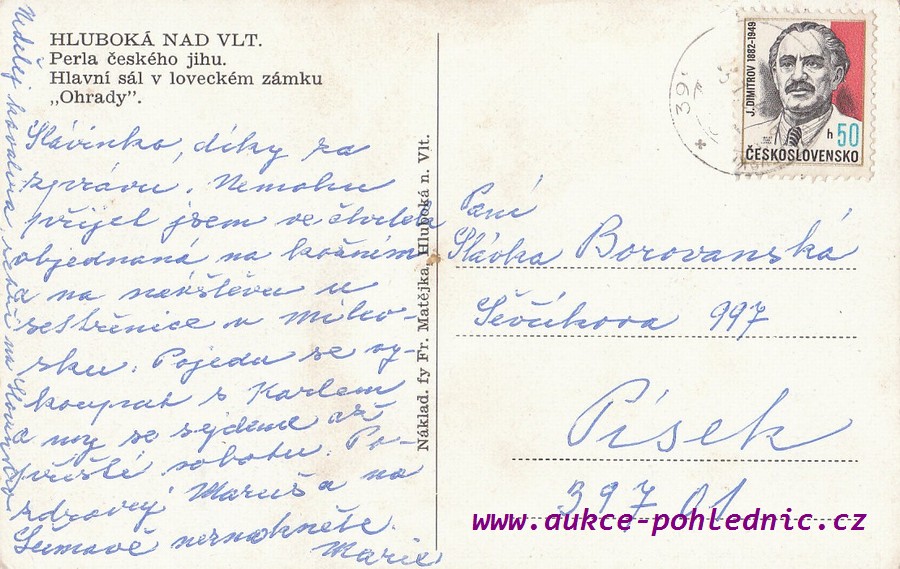 HLUBOKÁ NAD VLT.
Perla českého jihu.
Hlavní sál v loveckém zámku
„Ohrady".
Slávinko, díky za
zprávu. Nemohu
přijet jsem ve čtvrtek
objednaná na kožním
a na návštěvu u
sestřenice v Milev-
sku. Pojedu se vy
koupat s Karlem
a my se sejdeme až
příští sobotu. Po-
zdravuj Maruš a na
Šumavě nezmokněte.
Marie
Nedělej
na
Náklad. fy Fr. Matějka, Hluboká n. Vlt.
J. DIMITROV 1882-1949
h 50
ČESKOSLOVENSKO
39
Paní
Slávka Borovanská
Ševčíkova 997
Písek
397 01
www.aukce-pohlednic.cz